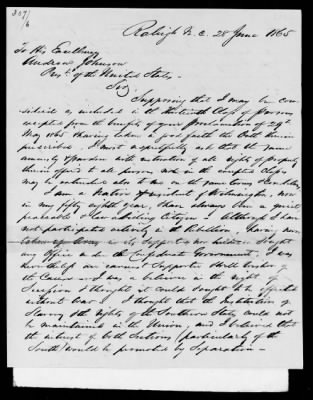 307/6
Raleigh N. C. 28 June 1865
To His Excellency
Andrew Johnson
Prest. of the United States.
Sir,
Supposing that I may be con-
sidered as included in the thirteenth Class of persons
excepted from the benefits of your Proclamation of 29th
May 1865 & having taken in good faith the Oath therein
prescribed, I most respectfully ask that the same
amnesty & pardon with restoration of all rights of property
therein offered to all persons not in the excepted Class
may be extended also to me on the same terms & conditions.
I am a Native & resident of Wilmington, now
in my fifty eighth year, & have always been a quiet
peaceable & law abiding Citizen. Although I have
not participated actively in the Rebellion, having never
taken up Arms in its support & nor held or sought
any Office under the Confederate Government, I was
nevertheless an earnest Supporter & well wisher of
the Cause. I was a believer in the right of
Secession & thought it could & ought to be effected
without War. I thought that the Institution of
Slavery & the rights of the Southern States could not
be maintained in the Union, and I believed that
the interest of both Sections (particularly of the
South) would be promoted by Separation.